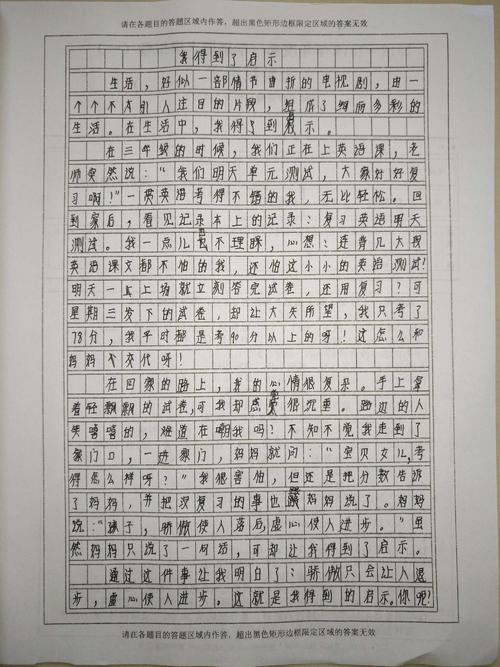 请在各题目的答题区域内作答，超出黑色矩形边框限定区域的答案无效
我得到了启示
生活，好似一部情节曲折的电视剧，由一
个个不太引人注目的片段，组成了绚丽多彩的
生活。在生活中，我得到了启示。
在三年级的时候，我们正在上英语课，老
师突然说：“我们明天单元测试，大家好好复
习啊！”一贯英语考得不错的我，无比轻松。回
到家后，看见记录本上的记录：复习英语明天
测试。我一点儿也不理睬，心想：连背几大段
英语课文都不怕的我，还怕这小小的英语测试！
明天一上场就立刻答完试卷，还用复习？可
星期三发下的试卷，却让大失所望，我只考了
78分，我平时都是考90分以上的呀！这怎么和
妈妈交代呀！
在回家的路上，我的心情很复杂。手上拿
着轻飘飘的试卷，可我却感觉很沉重。路边的人
笑嘻嘻的，难道在嘲我吗？不知不觉我走到了
家门口，一进家门，妈妈就问：“宝贝女儿，考
得怎么样呀？”我很害怕，但还是把分数告诉
了妈妈，并把没复习的事也跟妈妈说了。妈妈
说：“孩子，骄傲使人落后，虚心使人进步。”虽
然妈妈只说了一句话，可却让我得到了启示。
通过这件事让我明白了：骄傲只会让人退
步，虚心使人进步。这就是我得到的启示。你呢？
请在各题目的答题区域内作答，超出黑色矩形边框限定区域的答案无效